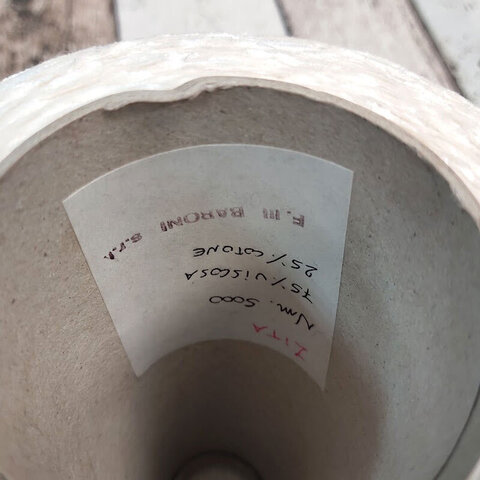 F.lli BARONI s.r.l.
25% COTONE
75% VISCOSA
Nm. 5000
ZITA